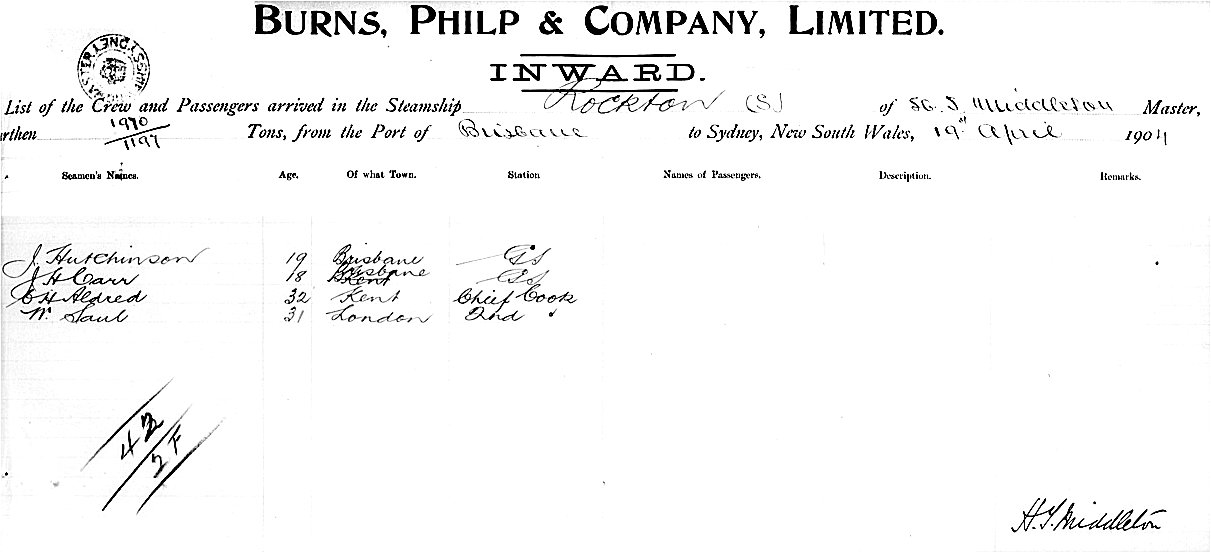 BURNS, PHILP & COMPANY, LIMITED.
INWARD.
List of the Crew and Passengers arrived in the Steamship Rockton (S) of H. T. Middleton Master,
urthen 1970/1197 Tons, from the Port of Brisbane to Sydney, New South Wales, 19st April 1904
Seamen's Names. Age. Of what Town. Station Names of Passengers. Description. Remarks.
J. Hutchinson 19 Brisbane GS
J H Carr 18 Brisbane Kent GS
C H Aldred 32 Kent Chief Cook
W. Saul 31 London 2nd "
42
2 F
H.T. Middleton